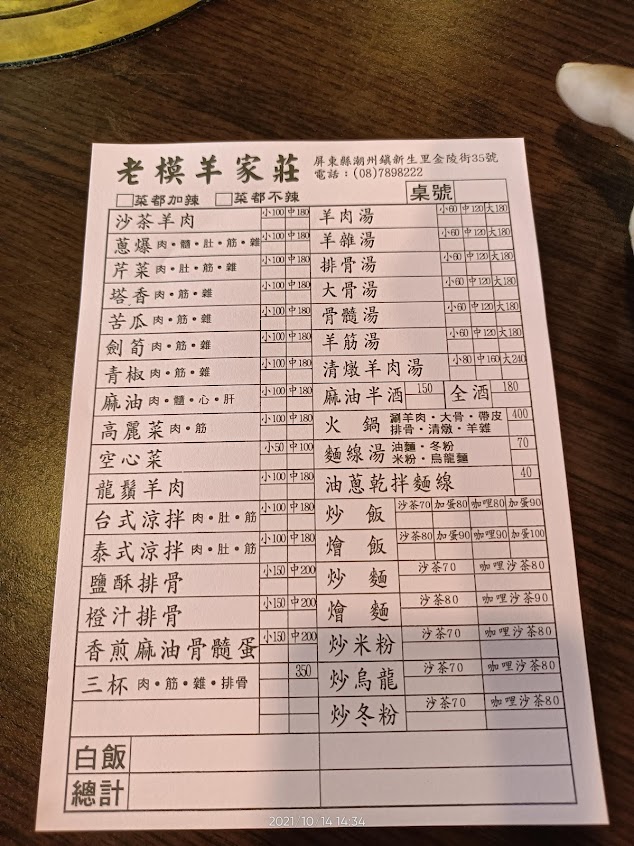 老模羊家莊
屏東縣潮州鎮新生里金陵街35號
電話：(08)7898222
菜都加辣 菜都不辣 桌號
沙茶羊肉 小100 中180
蔥爆 肉・髓・肚・筋・雜 小100 中180
芹菜 肉・肚・筋・雜 小100 中180
塔香 肉・筋・雜 小100 中180
苦瓜 肉・筋・雜 小100 中180
劍筍 肉・筋・雜 小100 中180
青椒 肉・筋・雜 小100 中180
麻油 肉・髓・心・肝 小100 中180
高麗菜 肉・筋 小100 中180
空心菜 小50 中100
龍鬚羊肉 小100 中180
台式涼拌 肉・肚・筋 小100 中180
泰式涼拌 肉・肚・筋 小100 中180
鹽酥排骨 小150 中200
橙汁排骨 小150 中200
香煎麻油骨髓蛋 小150 中200
三杯 肉・筋・雜・排骨 350
羊肉湯 小60 中120 大180
羊雜湯 小60 中120 大180
排骨湯 小60 中120 大180
大骨湯 小60 中120 大180
骨髓湯 小60 中120 大180
羊筋湯 小60 中120 大180
清燉羊肉湯 小80 中160 大240
麻油半酒 150 全酒 180
火鍋 涮羊肉・大骨・帶皮 400
排骨・清燉・羊雜
麵線湯 油麵・冬粉 70
米粉・烏龍麵
油蔥乾拌麵線 40
炒飯 沙茶70 加蛋80 咖哩80 加蛋90
燴飯 沙茶80 加蛋90 咖哩90 加蛋100
炒麵 沙茶70 咖哩沙茶80
燴麵 沙茶80 咖哩沙茶90
炒米粉 沙茶70 咖哩沙茶80
炒烏龍 沙茶70 咖哩沙茶80
炒冬粉 沙茶70 咖哩沙茶80
白飯
總計
2021/10/14 14:34